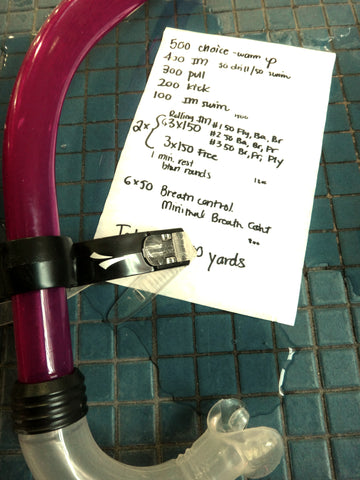 500 choice - warm up
400 IM 50 drill/50 swim
300 pull
200 kick
100 IM swim
1500
Rolling IM #1 50 Fly, Ba, Br
2x { 3x150 #2 50 Ba, Br, Fr
#3 50 Br, Fr, Fly
3x150 Free
1 min. rest
btwn rounds
6x50 Breath control
Minimal Breath Count
300
yards